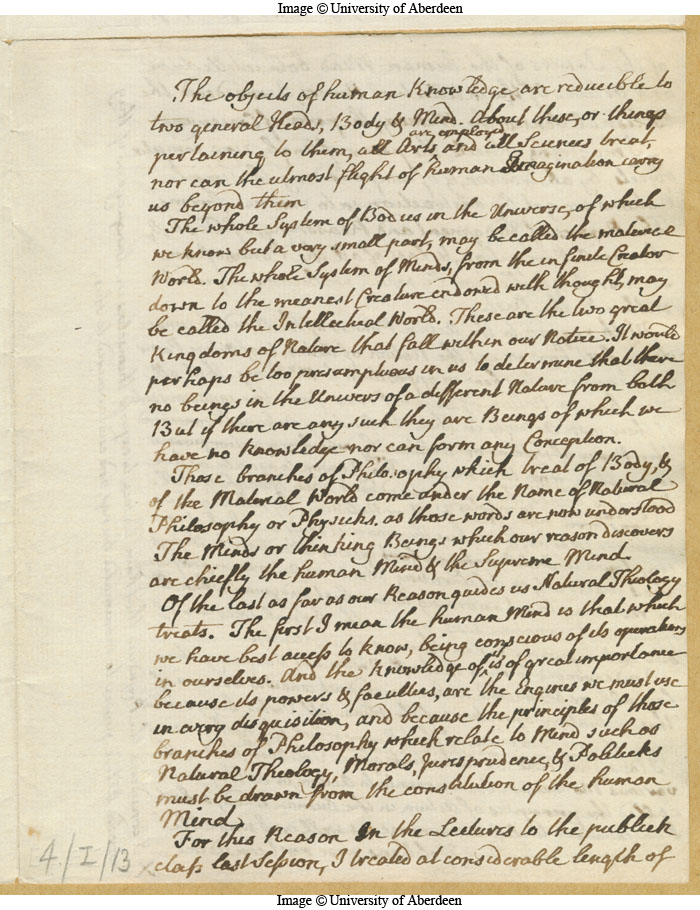 Image © University of Aberdeen
The objects of human Knowledge are reducible to
two general Heads, Body & Mind. About these, or things
are employed
pertaining to them, all Arts and all Sciences treat,
nor can the utmost flight of human Imagination carry
us beyond them
The whole System of Bodies in the Universe, of which
we know but a very small part, may be called the material
World. The whole System of Minds, from the infinite Creator
down to the meanest Creature endowed with thought, may
be called the Intellectual World. These are the two great
Kingdoms of Nature that fall within our Notice. It would
perhaps be too presumptuous in us to determine that there
no beings in the Univers of a different Nature from both
But if there are any such they are Beings of which we
have no knowledge nor can form any Conception.
Those branches of Philosophy which treat of Body, &
of the Material World come under the Name of Natural
Philosophy or Physicks. as those words are now understood
The Minds or thinking Beings which our reason discovers
are chiefly the human Mind & the Supreme Mind.
Of the last as far as our Reason guides us Natural Theology
treats. The first I mean the human Mind is that which
we have best access to know, being conscious of its operations
in ourselves. And the knowledge of it is of great importance
because its powers & faculties, are the Engines we must use
in every disquisition, and because the principles of those
branches of Philosophy which relate to Mind such as
Natural Theology, Morals, Jurisprudence, & Politicks
must be drawn from the constitution of the human
Mind.
For this Reason In the Lectures to the publick
class last Session, I treated at considerable length of
4/I/13
Image © University of Aberdeen